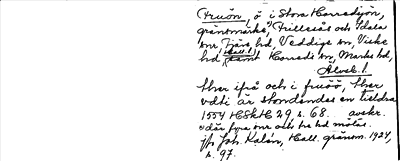 Fruön, ö i Stora Horredsjön,
gränsmärke, Frillesås och Idala
snr, Fjäre hd, Veddige sn, Viske
hd (Hall.) samt Horreds sn, Marks hd,
Älvsb. l.
ther ifrå och i fruöö, ther
vdti är stondandes en
1554 HSkH 29, s. 68. avskr.
där fyra snr och tre hd mötas.
jfr Joh. Kalén, Hall. gränsm. 1934,
s. 97.